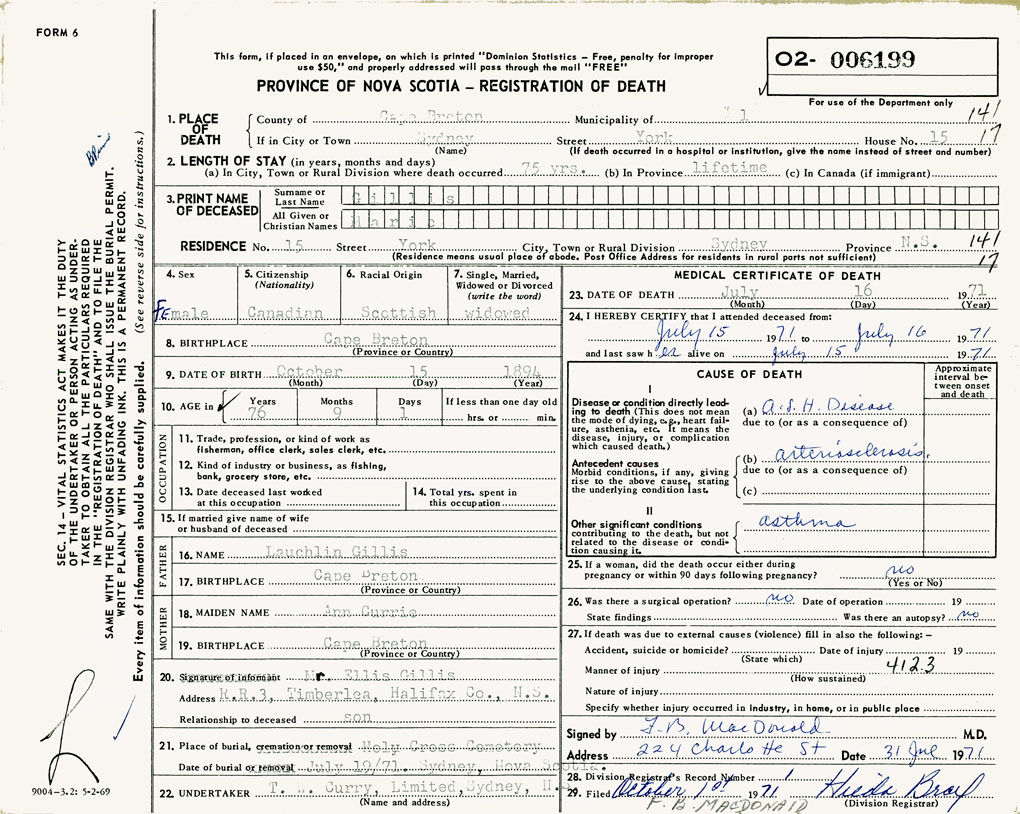 FORM 6
This form, if placed in an envelope, on which is printed "Dominion Statistics – Free, penalty for improper
use $50," and properly addressed will pass through the mail "FREE"
PROVINCE OF NOVA SCOTIA – REGISTRATION OF DEATH
O2- 006199
For use of the Department only
1. PLACE OF DEATH
County of Cape Breton Municipality of 141
If in City or Town Sydney Street York House No. 15 17
(Name) (If death occurred in a hospital or institution, give the name instead of street and number)
2. LENGTH OF STAY (in years, months and days)
(a) In City, Town or Rural Division where death occurred 75 yrs. (b) In Province lifetime (c) In Canada (if immigrant)
3. PRINT NAME OF DECEASED
Surname or Last Name Gillis
All Given or Christian Names Marie
RESIDENCE No. 15 Street York City, Town or Rural Division Sydney Province N.S. 141
(Residence means usual place of abode. Post Office Address for residents in rural parts not sufficient) 17
4. Sex
Female
5. Citizenship
(Nationality)
Canadian
6. Racial Origin
Scottish
7. Single, Married,
Widowed or Divorced
(write the word)
widowed
8. BIRTHPLACE Cape Breton
(Province or Country)
9. DATE OF BIRTH October 15 1894
(Month) (Day) (Year)
10. AGE in Years Months Days If less than one day old
76 9 1 hrs. or min.
OCCUPATION
11. Trade, profession, or kind of work as
fisherman, office clerk, sales clerk, etc.
12. Kind of industry or business, as fishing,
bank, grocery store, etc.
13. Date deceased last worked
at this occupation
14. Total yrs. spent in
this occupation
15. If married give name of wife
or husband of deceased
FATHER
16. NAME Lauchlin Gillis
17. BIRTHPLACE Cape Breton
(Province or Country)
MOTHER
18. MAIDEN NAME Ann Currie
19. BIRTHPLACE Cape Breton
(Province or Country)
20. Signature of informant Mr. Ellis Gillis
Address R.R.3, Timberlea, Halifax Co., N.S.
Relationship to deceased son
21. Place of burial, cremation or removal Holy Cross Cemetery
Date of burial or removal July 19/71. Sydney, Nova Scotia.
22. UNDERTAKER T. W. Curry, Limited, Sydney, N.S.
(Name and address)
MEDICAL CERTIFICATE OF DEATH
23. DATE OF DEATH July 16 1971
(Month) (Day) (Year)
24. I HEREBY CERTIFY that I attended deceased from:
July 15 1971 to July 16 1971
and last saw her alive on July 15 1971
CAUSE OF DEATH
Approximate
interval be-
tween onset
and death
I
Disease or condition directly lead-
ing to death (This does not mean
the mode of dying, e.g., heart fail-
ure, asthenia, etc. It means the
disease, injury, or complication
which caused death.)
(a) A.S.H. Disease
due to (or as a consequence of)
Antecedent causes
Morbid conditions, if any, giving
rise to the above cause, stating
the underlying condition last.
(b) arteriosclerosis.
due to (or as a consequence of)
(c)
II
Other significant conditions
contributing to the death, but not
related to the disease or condi-
tion causing it.
asthma
25. If a woman, did the death occur either during
pregnancy or within 90 days following pregnancy? no
(Yes or No)
26. Was there a surgical operation? no Date of operation 19
State findings Was there an autopsy? no
27. If death was due to external causes (violence) fill in also the following: –
Accident, suicide or homicide? Date of injury 19
(State which)
Manner of injury 412.3
(How sustained)
Nature of injury
Specify whether injury occurred in industry, in home, or in public place
Signed by F. B. MacDonald M.D.
Address 224 Charlotte St Date 31 Jul 1971
28. Division Registrar's Record Number 1
29. Filed October 1st 1971
(Division Registrar)
F. B. MACDONALD
SEC. 14 – VITAL STATISTICS ACT MAKES IT THE DUTY
OF THE UNDERTAKER OR PERSON ACTING AS UNDER-
TAKER TO OBTAIN ALL THE PARTICULARS REQUIRED
IN THE "REGISTRATION OF DEATH" AND TO FILE THE
SAME WITH THE DIVISION REGISTRAR WHO SHALL ISSUE THE BURIAL PERMIT.
WRITE PLAINLY WITH UNFADING INK. THIS IS A PERMANENT RECORD.
Every item of information should be carefully supplied. (See reverse side for instructions.)
9004-3.2: 5-2-69